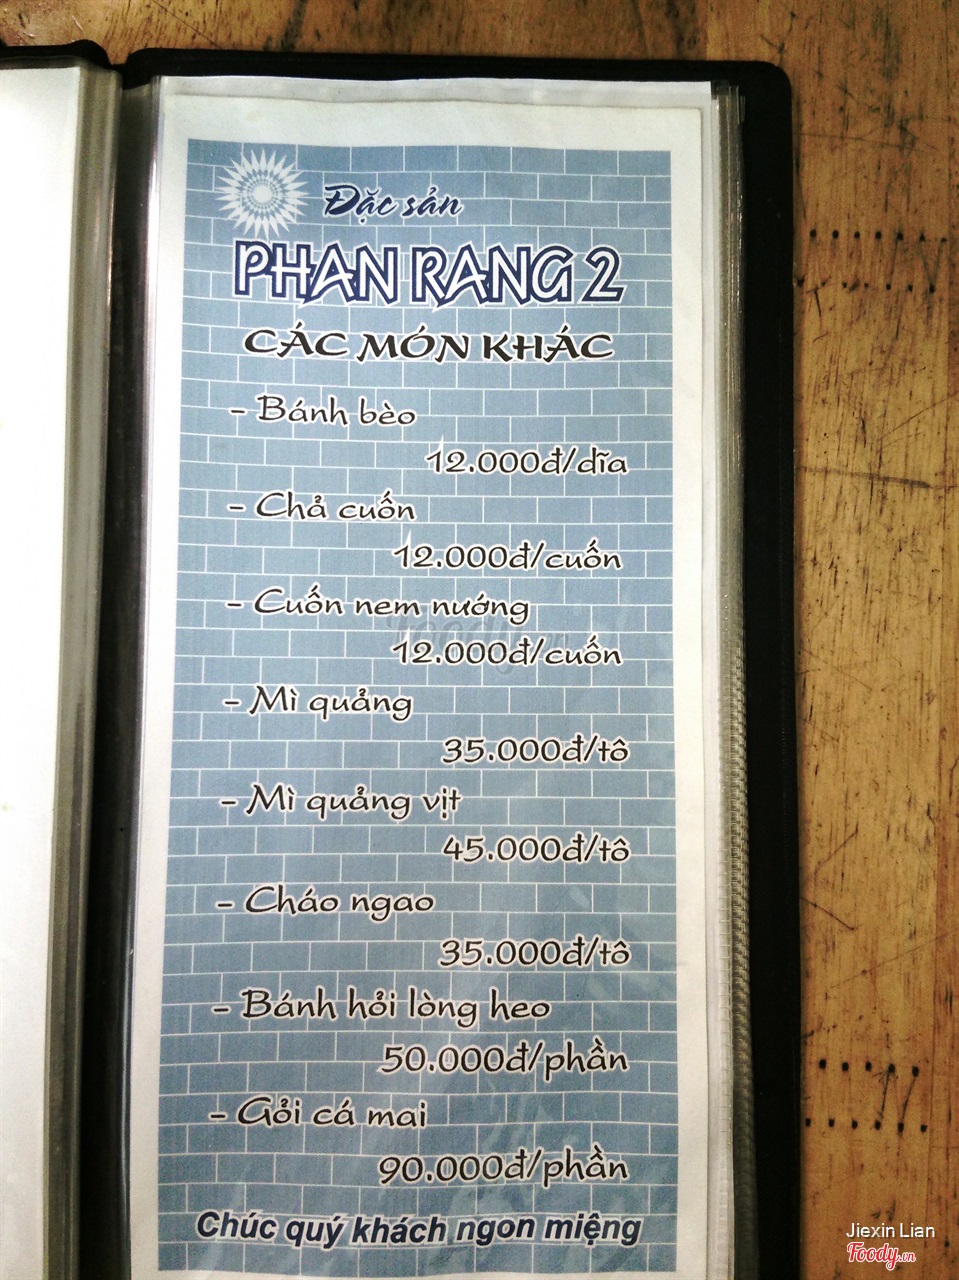 Đặc sản
PHAN RANG 2
CÁC MÓN KHÁC
- Bánh bèo
12.000đ/dĩa
- Chả cuốn
12.000đ/cuốn
- Cuốn nem nướng
12.000đ/cuốn
- Mì quảng
35.000đ/tô
- Mì quảng vịt
45.000đ/tô
- Cháo ngao
35.000đ/tô
- Bánh hỏi lòng heo
50.000đ/phần
- Gỏi cá mai
90.000đ/phần
Chúc quý khách ngon miệng
Jiexin Lian
Foody.vn